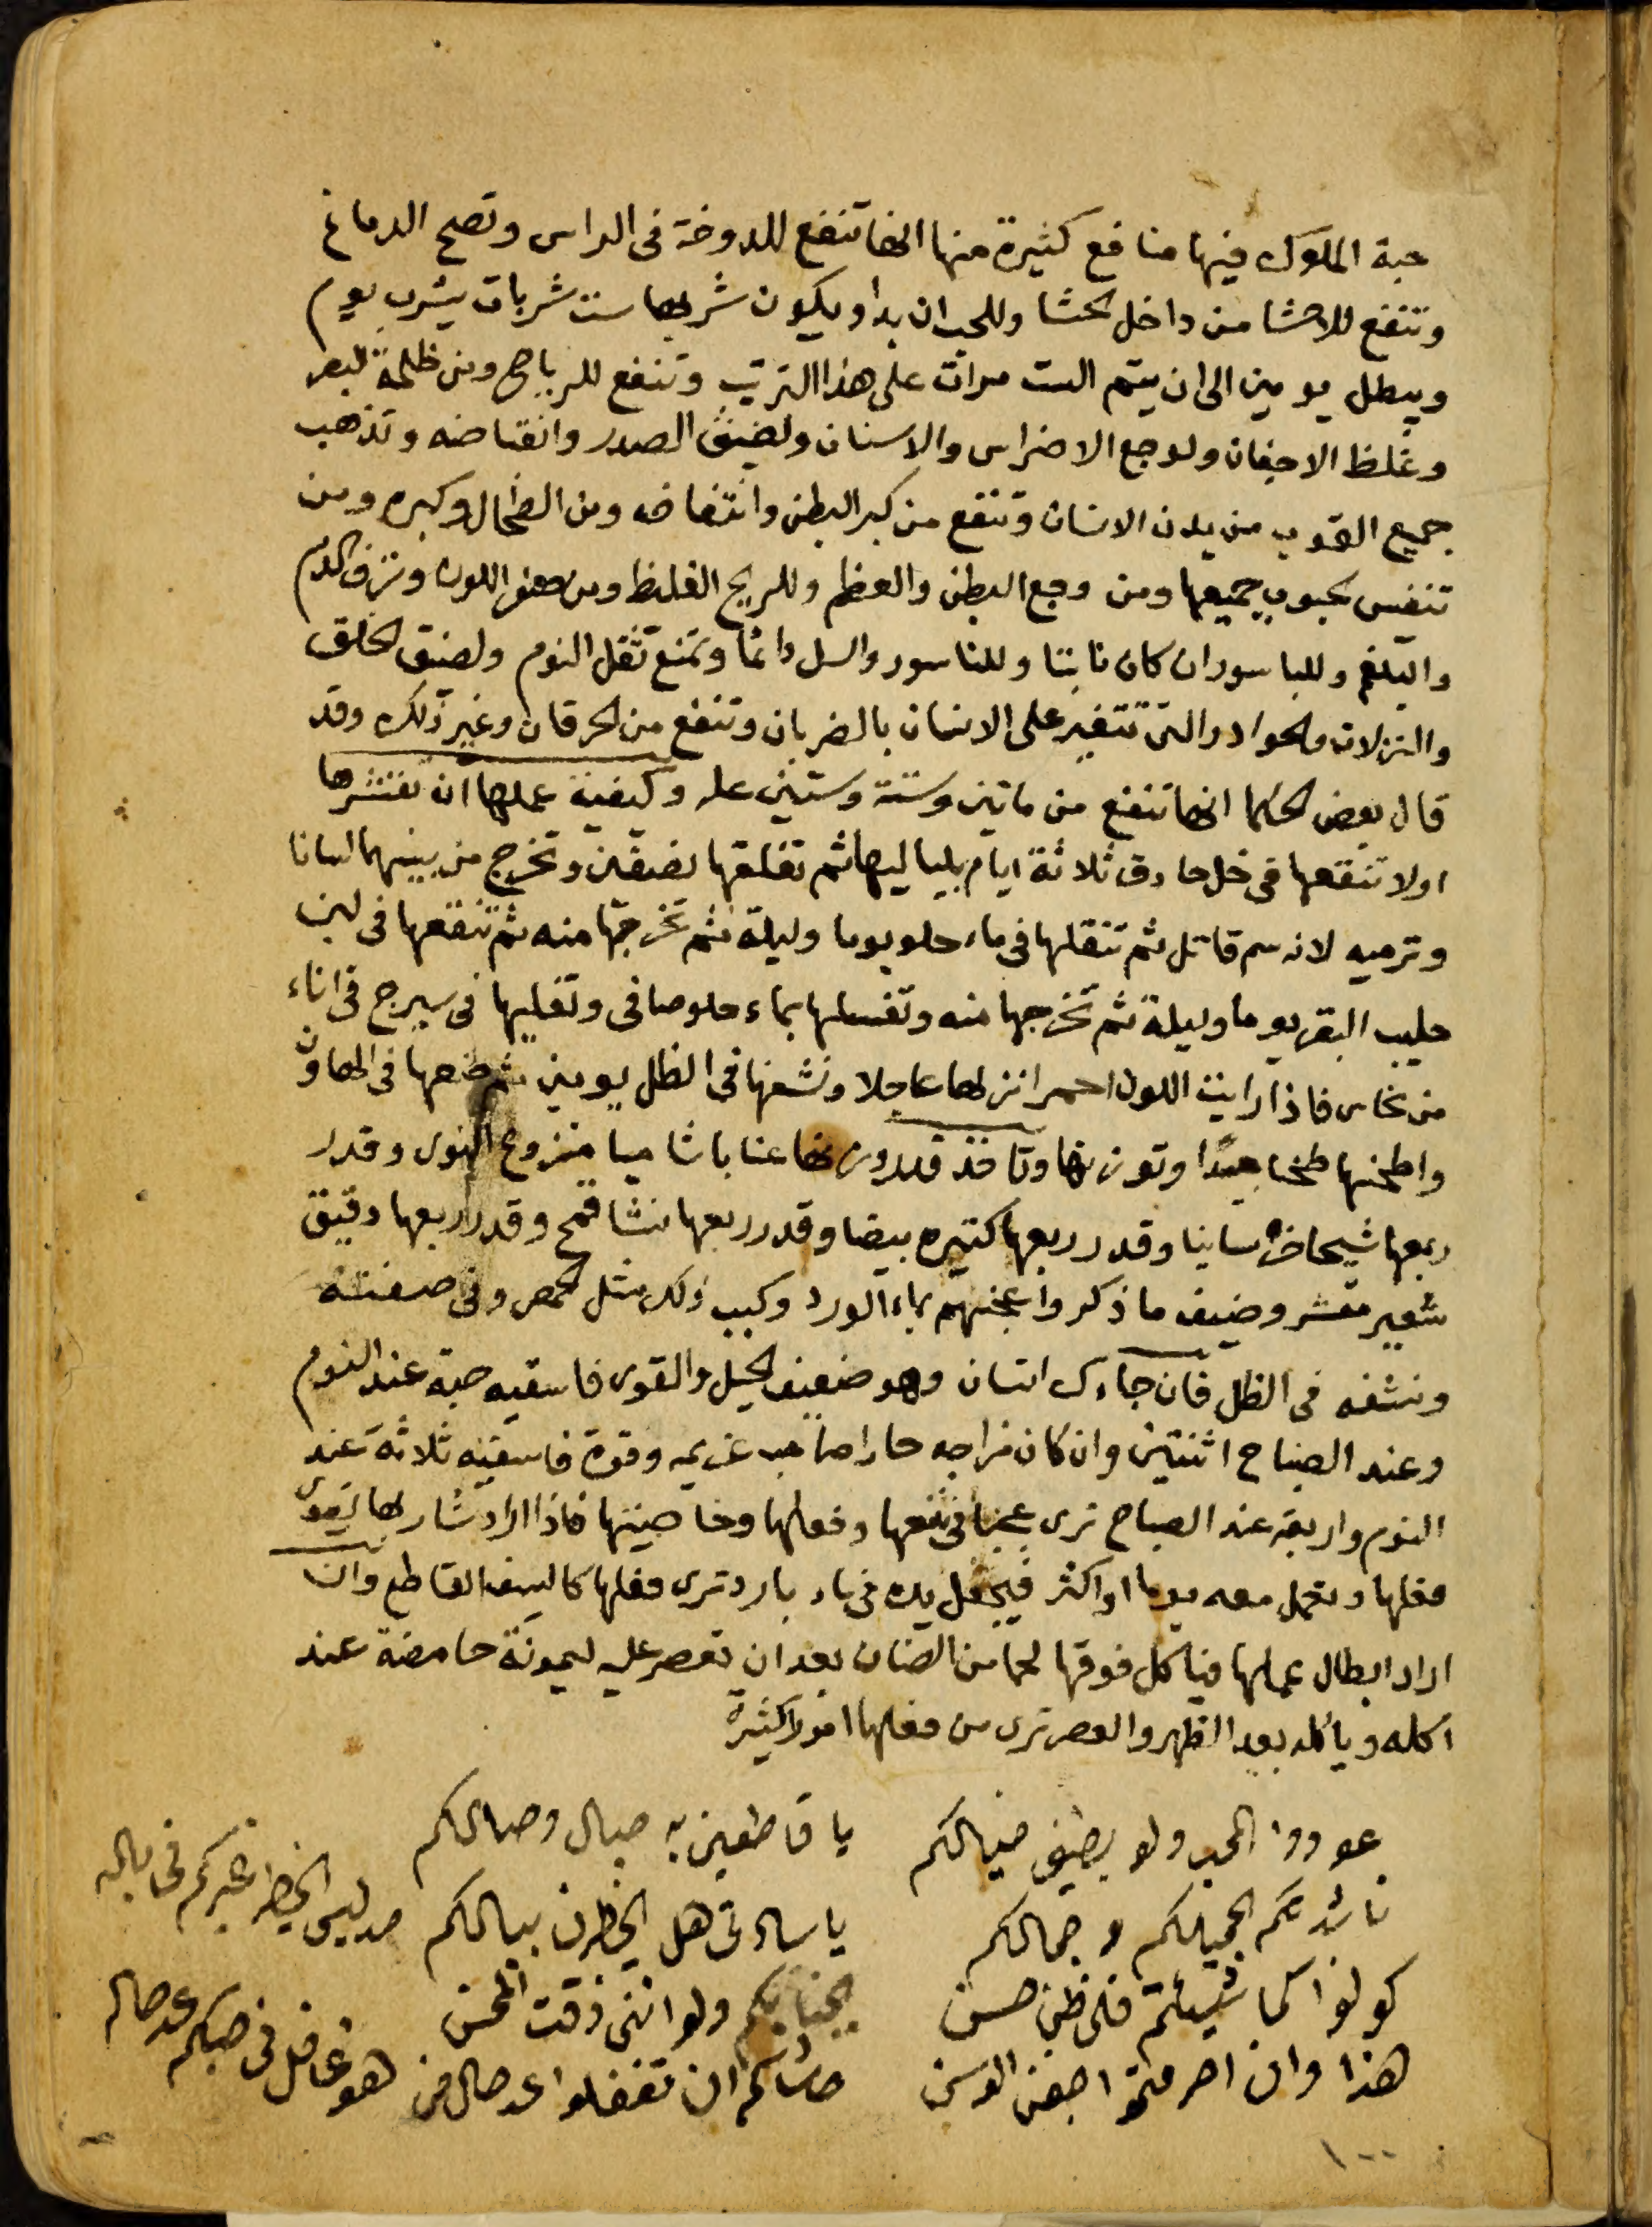 حبة الملوك فيها منافع كثيرة منها انها تنفع للدوخة فى الراس وتصح الدماغ
وتنفع للاحشا من داخل الحشا وللجدان بدا ويكون شربها ست شربات يشرب يوم
ويبطل يومين الى ان يتم الست مرات على هذا الترتيب وتنفع للرياح ومن ظلمة البصر
وغلظ الاجفان ولوجع الاضراس والاسنان ولضيق الصدر وانقباضه وتذهب
جميع القوب من بدن الانسان وتنفع من كبر البطن وانتفاخه ومن الطحال وكبره ومن
تنفيس الحبوب جميعها ومن وجع البطن والعظم وللريح الغليظ ومن صفر اللون ونزف الدم
والبلغم وللباسور ان كان نابتا وللناسور والسل دائما وتمنع ثقل النوم ولضيق الخلق
والنزلات والحوادر التى تتغير على الانسان بالضربان وتنفع من الحرقان وغير ذلك وقد
قال بعض الحكما انها تنفع من ماتين وستة وستين عله وكيفية عملها ان تقشرها
اولا تنقعها فى خل حادق ثلاثة ايام بلياليها ثم تفلقها نصفين وتخرج من بينهما لسانا
وترميه لانه سم قاتل ثم تنقلها فى ماء حلو يوما وليلة ثم تخرجها منه ثم تنقعها فى لبن
حليب البقر يوما وليلة ثم تخرجها منه وتغسلها بماء حلو صافى وتقليها فى سيرج فى اناء
من نحاس فاذا رايت اللون احمر انزلها عاجلا ونشفها فى الظل يومين ثم ضعها فى الهاون
واطحنها طحنا جيدا وتوزنها وتاخذ قدر وزنها عنابا شاميا منزوع النوى وقدر
ربعها شيحا خراسانيا وقدر ربعها كتيره بيضا وقدر ربعها نشا قمح وقدر ربعها دقيق
شعير مقشر وضيف ما ذكر واعجنهم بماء الورد وكبب ذلك مثل الحمص وفى صفته
ونشفه فى الظل فان جاءك انسان وهو ضعيف الحيل والقوى فاسقيه حبة عند النوم
وعند الصباح اثنتين وان كان مزاجه حارا صاحب عزيمه وقوة فاسقيه ثلاثة عند
النوم واربعة عند الصباح ترى عجبا فى نفعها وفعلها وخاصيتها فاذا اراد شاربها يقوى
فعلها وتعمل معه يوما او اكثر فيجعل يده فى ماء بارد ترى فعلها كالسيف القاطع وان
اراد ابطال عملها فياكل فوقها لحما من الضان بعد ان يعصر عليه ليمونة حامضة عند
اكله وياكله بعد الظهر والعصر ترى من فعلها امورا كثيرة
عودوا المحب ولو بطيف خيالكم يا قاطعين به حبال وصالكم
ناشدتكم بجميلكم وجمالكم يا سادتى هل يخطرن ببالكم من ليس يخطر غيركم فى باله
كونوا كما شيئتم فلى ظن حسن بجنابكم ولو اننى ذقت المحن
هذا وان احرمتمو اجفنى الوسن حاشاكم ان تغفلوا عن حال من هو غافل فى حبكم عن حاله
١٠٠